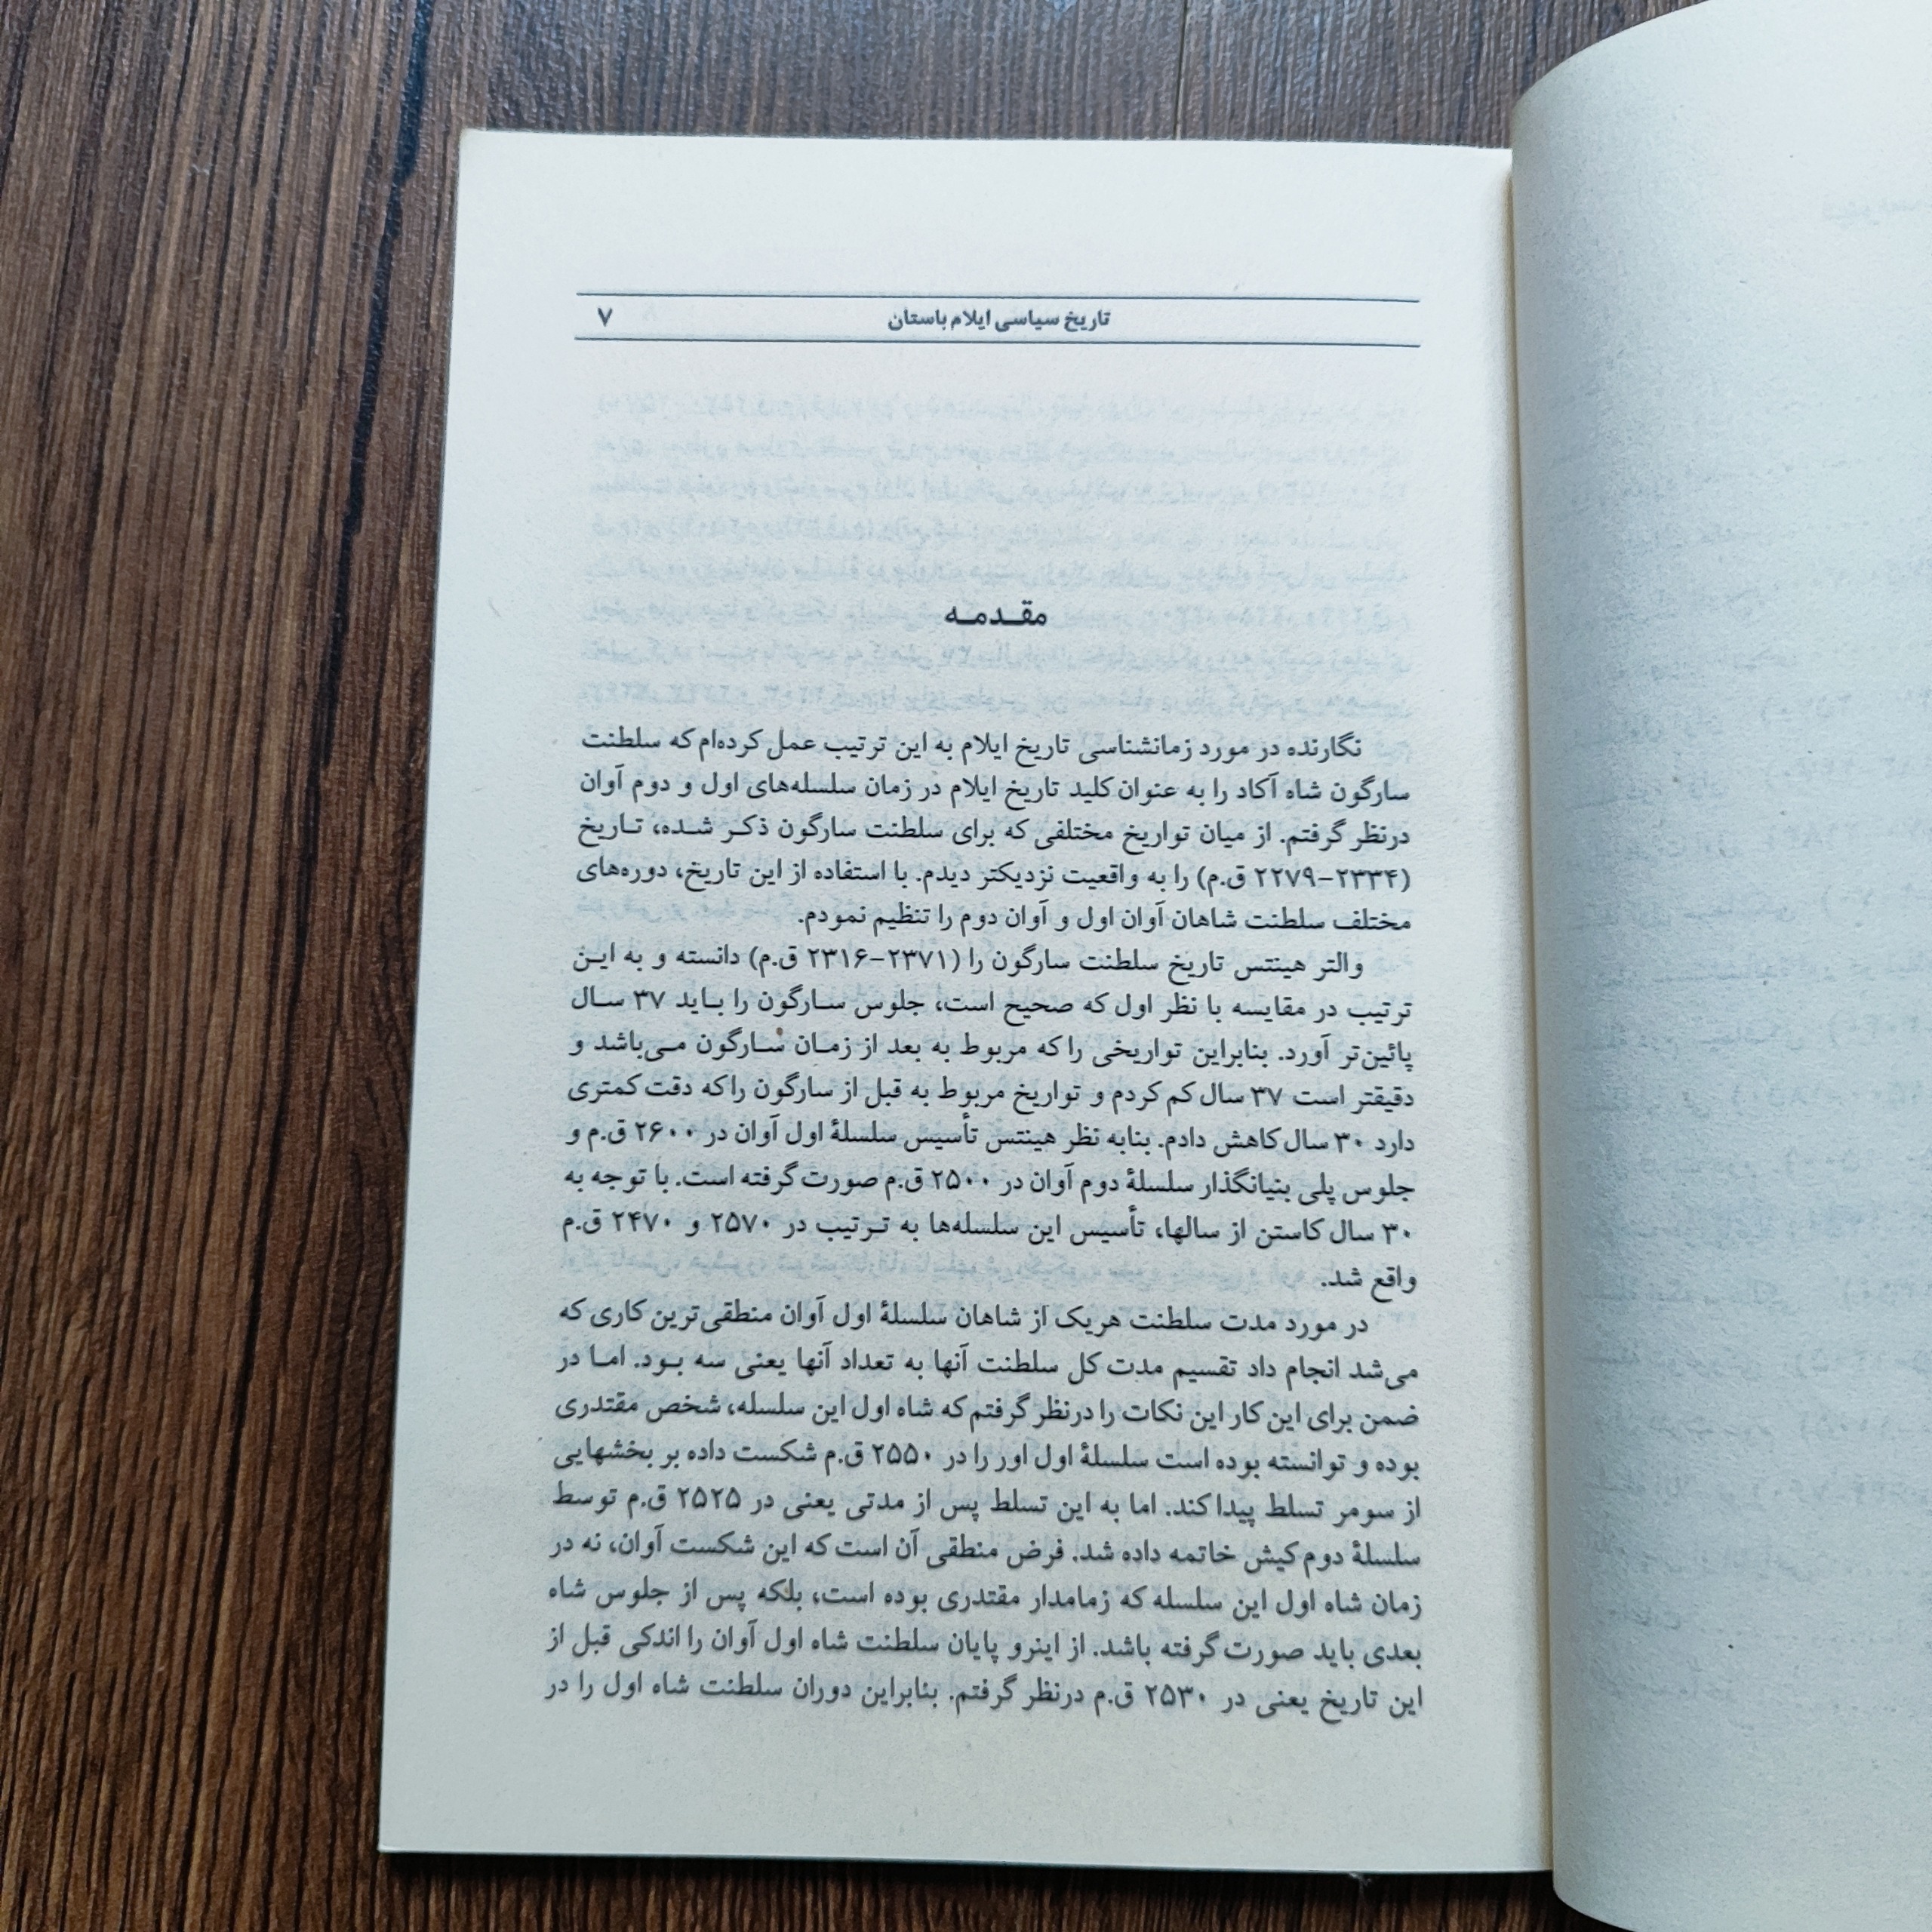 تاریخ سیاسی ایلام باستان ۷
مقـدمـه
نگارنده در مورد زمانشناسی تاریخ ایلام به این ترتیب عمل کرده‌ام که سلطنت
سارگون شاه آکاد را به عنوان کلید تاریخ ایلام در زمان سلسله‌های اول و دوم آوان
درنظر گرفتم. از میان تواریخ مختلفی که برای سلطنت سارگون ذکـر شـده، تـاریخ
(۲۳۳۴–۲۲۷۹ ق.م) را به واقعیت نزدیکتر دیدم. با استفاده از این تاریخ، دوره‌های
مختلف سلطنت شاهان آوان اول و آوان دوم را تنظیم نمودم.
والتر هینتس تاریخ سلطنت سارگون را (۲۳۷۱–۲۳۱۶ ق.م) دانسته و به ایـن
ترتیب در مقایسه با نظر اول که صحیح است، جلوس سـارگون را بـاید ۳۷ سـال
پائین‌تر آورد. بنابراین تواریخی را که مربوط به بعد از زمـان سـارگون مـی‌باشد و
دقیقتر است ۳۷ سال کم کردم و تواریخ مربوط به قبل از سارگون را که دقت کمتری
دارد ۳۰ سال کاهش دادم. بنابه نظر هینتس تأسیس سلسلهٔ اول آوان در ۲۶۰۰ ق.م و
جلوس پلی بنیانگذار سلسلهٔ دوم آوان در ۲۵۰۰ ق.م صورت گرفته است. با توجه به
۳۰ سال کاستن از سالها، تأسیس این سلسله‌ها به تـرتیب در ۲۵۷۰ و ۲۴۷۰ ق.م
واقع شد.
در مورد مدت سلطنت هریک از شاهان سلسلهٔ اول آوان منطقی‌ترین کاری که
می‌شد انجام داد تقسیم مدت کل سلطنت آنها به تعداد آنها یعنی سه بـود. امـا در
ضمن برای این کار این نکات را درنظر گرفتم که شاه اول این سلسله، شخص مقتدری
بوده و توانسته بوده است سلسلهٔ اول اور را در ۲۵۵۰ ق.م شکست داده بر بخشهایی
از سومر تسلط پیدا کند. اما به این تسلط پس از مدتی یعنی در ۲۵۲۵ ق.م توسط
سلسلهٔ دوم کیش خاتمه داده شد. فرض منطقی آن است که این شکست آوان، نه در
زمان شاه اول این سلسله که زمامدار مقتدری بوده است، بلکه پس از جلوس شاه
بعدی باید صورت گرفته باشد. از اینرو پایان سلطنت شاه اول آوان را اندکی قبل از
این تاریخ یعنی در ۲۵۳۰ ق.م درنظر گرفتم. بنابراین دوران سلطنت شاه اول را در